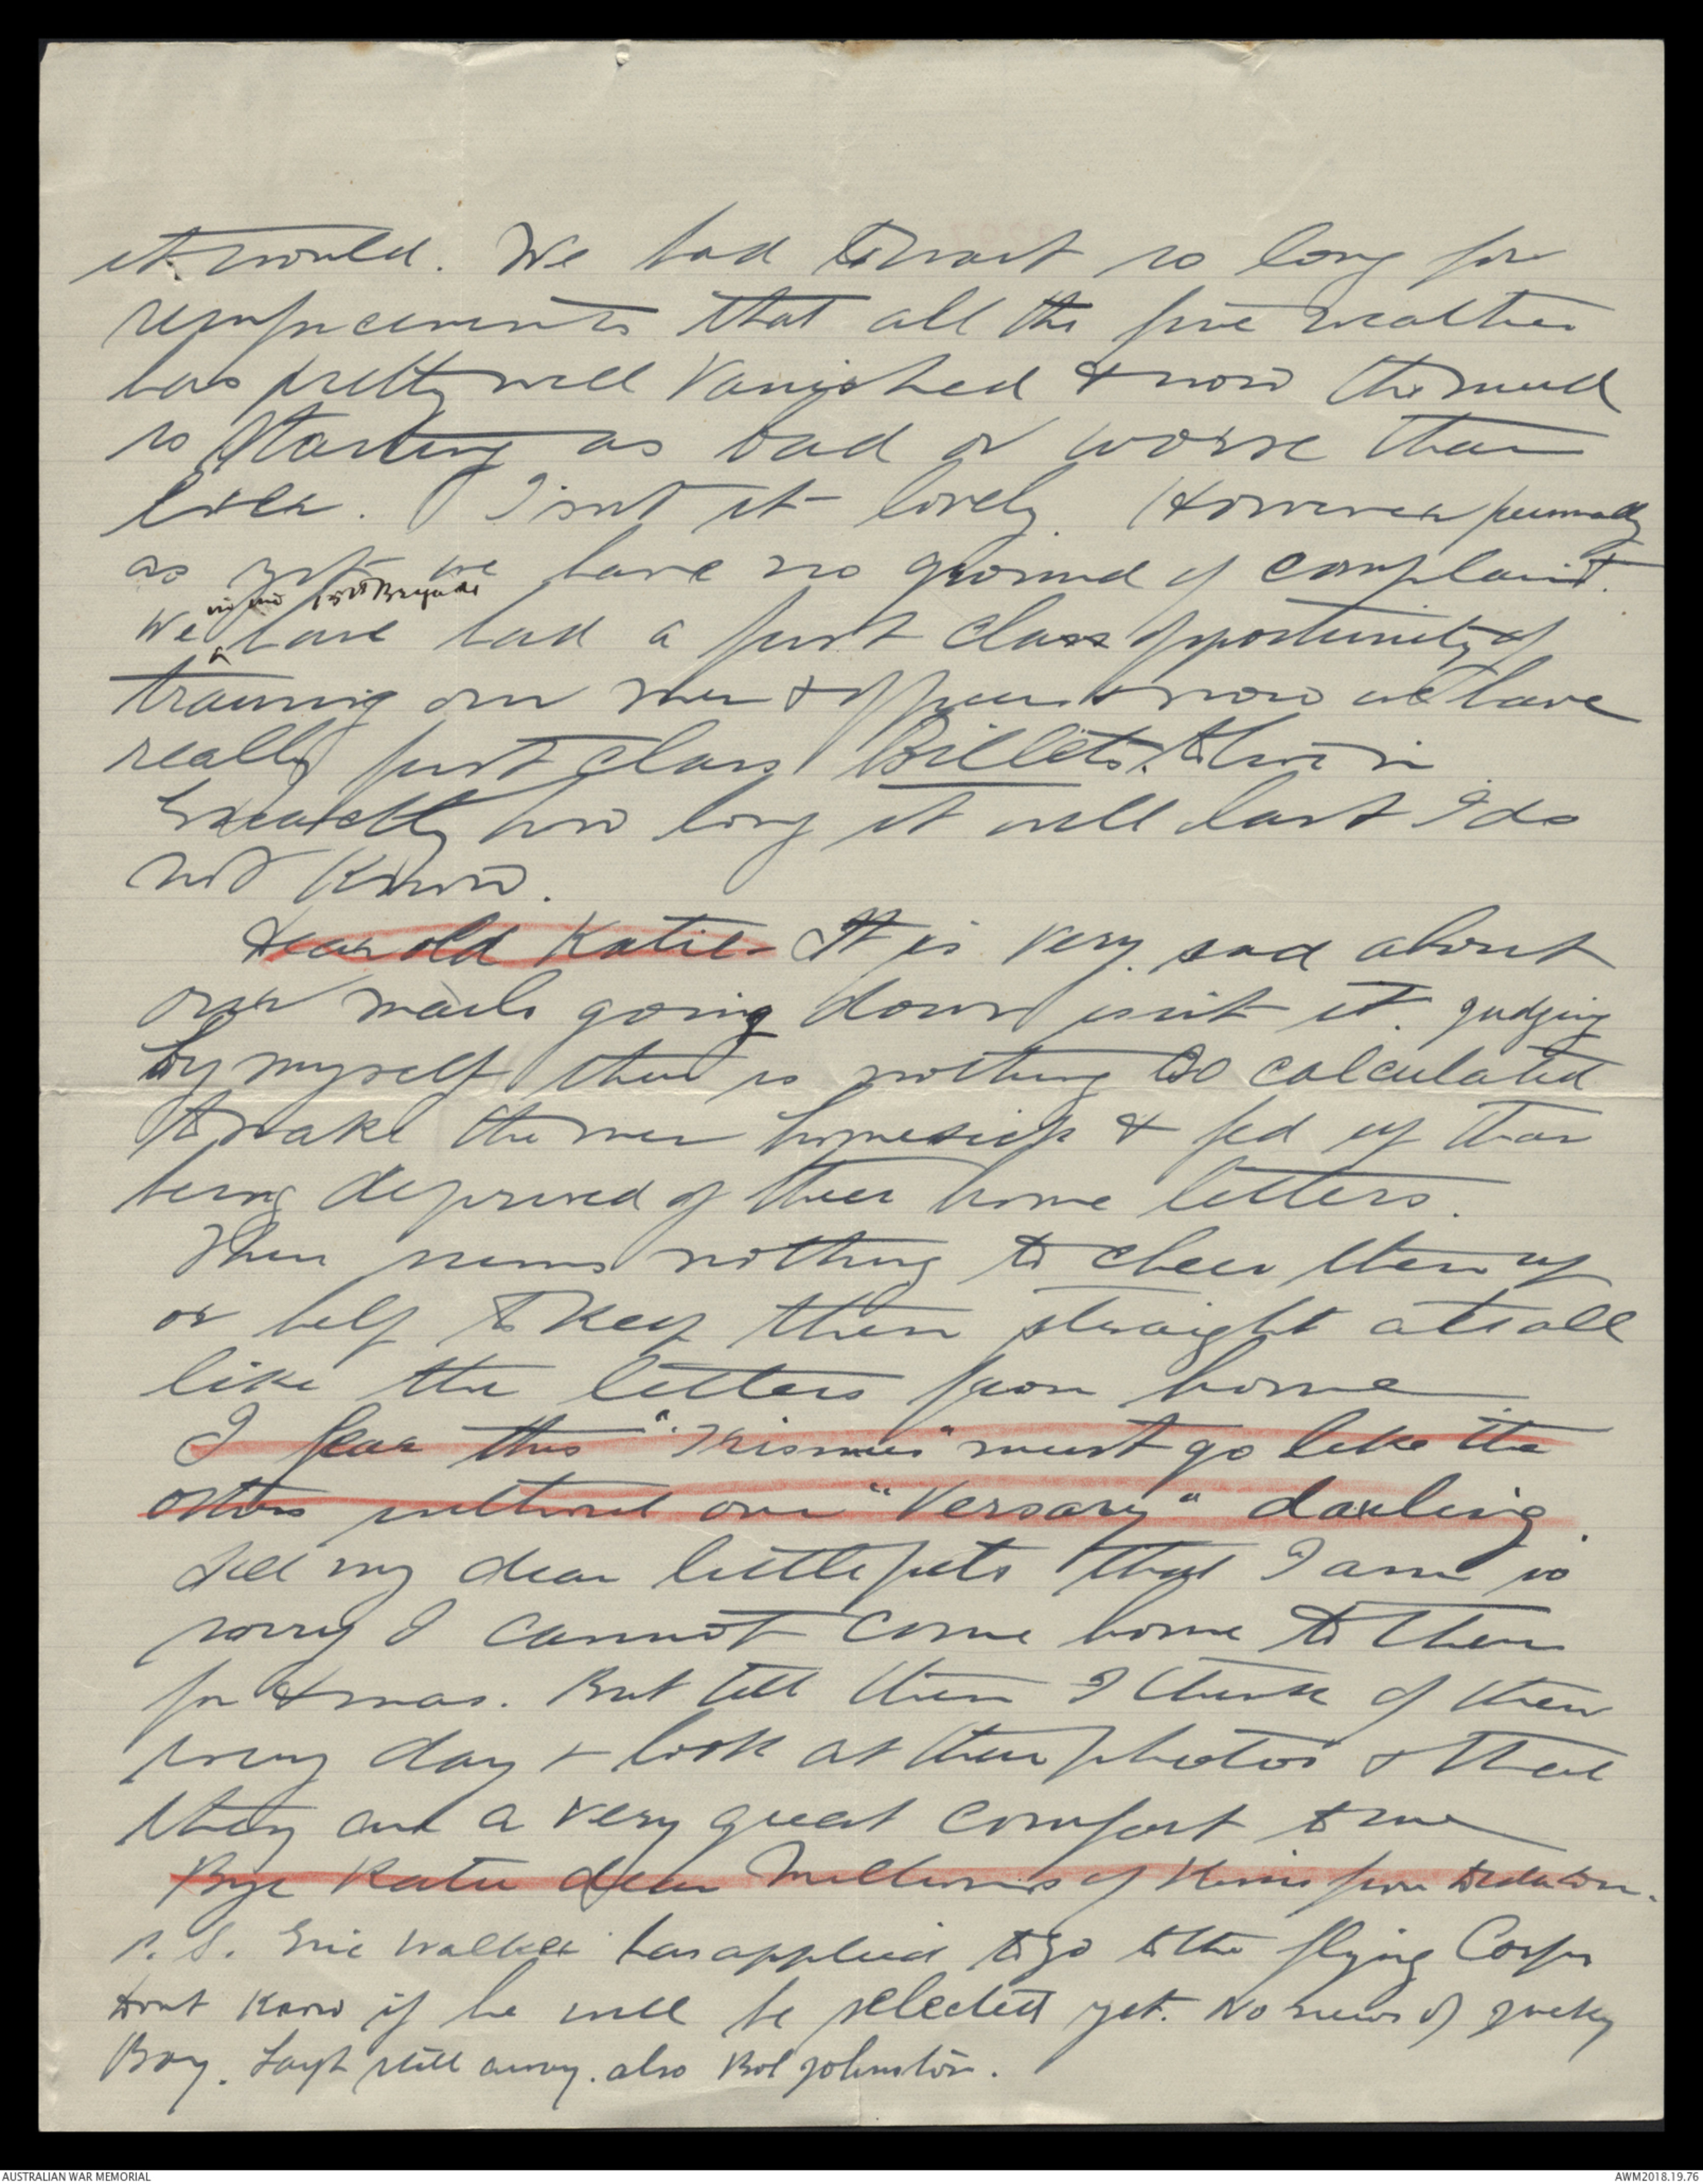 it would. We had to wait so long for
reinforcements that all the fine weather
has pretty well vanished & now the mud
is starting as bad or worse than
ever. Isnt it lovely. However personally
as yet we have no ground of complaint.
in our 15th Brigade
We have had a first class opportunity of
training our men & officers & now we have
really first class Billets to live in
Exactly how long it will last I do
not know.
Dear old Katie It is very sad about
our mails going down isnt it. Judging
by myself there is nothing so calculated
to make the men homesick & fed up than
being deprived of their home letters.
There seems nothing to cheer them up
or help to keep them straight at all
like the letters from home
I fear this "Krismus" must go like the
others without our "Versary" darling.
Tell my dear little pets that I am so
sorry I cannot come home to them
for Xmas. But tell them I think of them
every day & look at their photos & that
they are a very great comfort to me
Bye Katie dear Millions of Kisses from
P.S. Eric Walker has applied to go to the flying Corps
Dont know if he will be selected yet. No news of Jacky
Boy. Layh still away. also Bob Johnston.
AUSTRALIAN WAR MEMORIAL
AWM2018.19.76